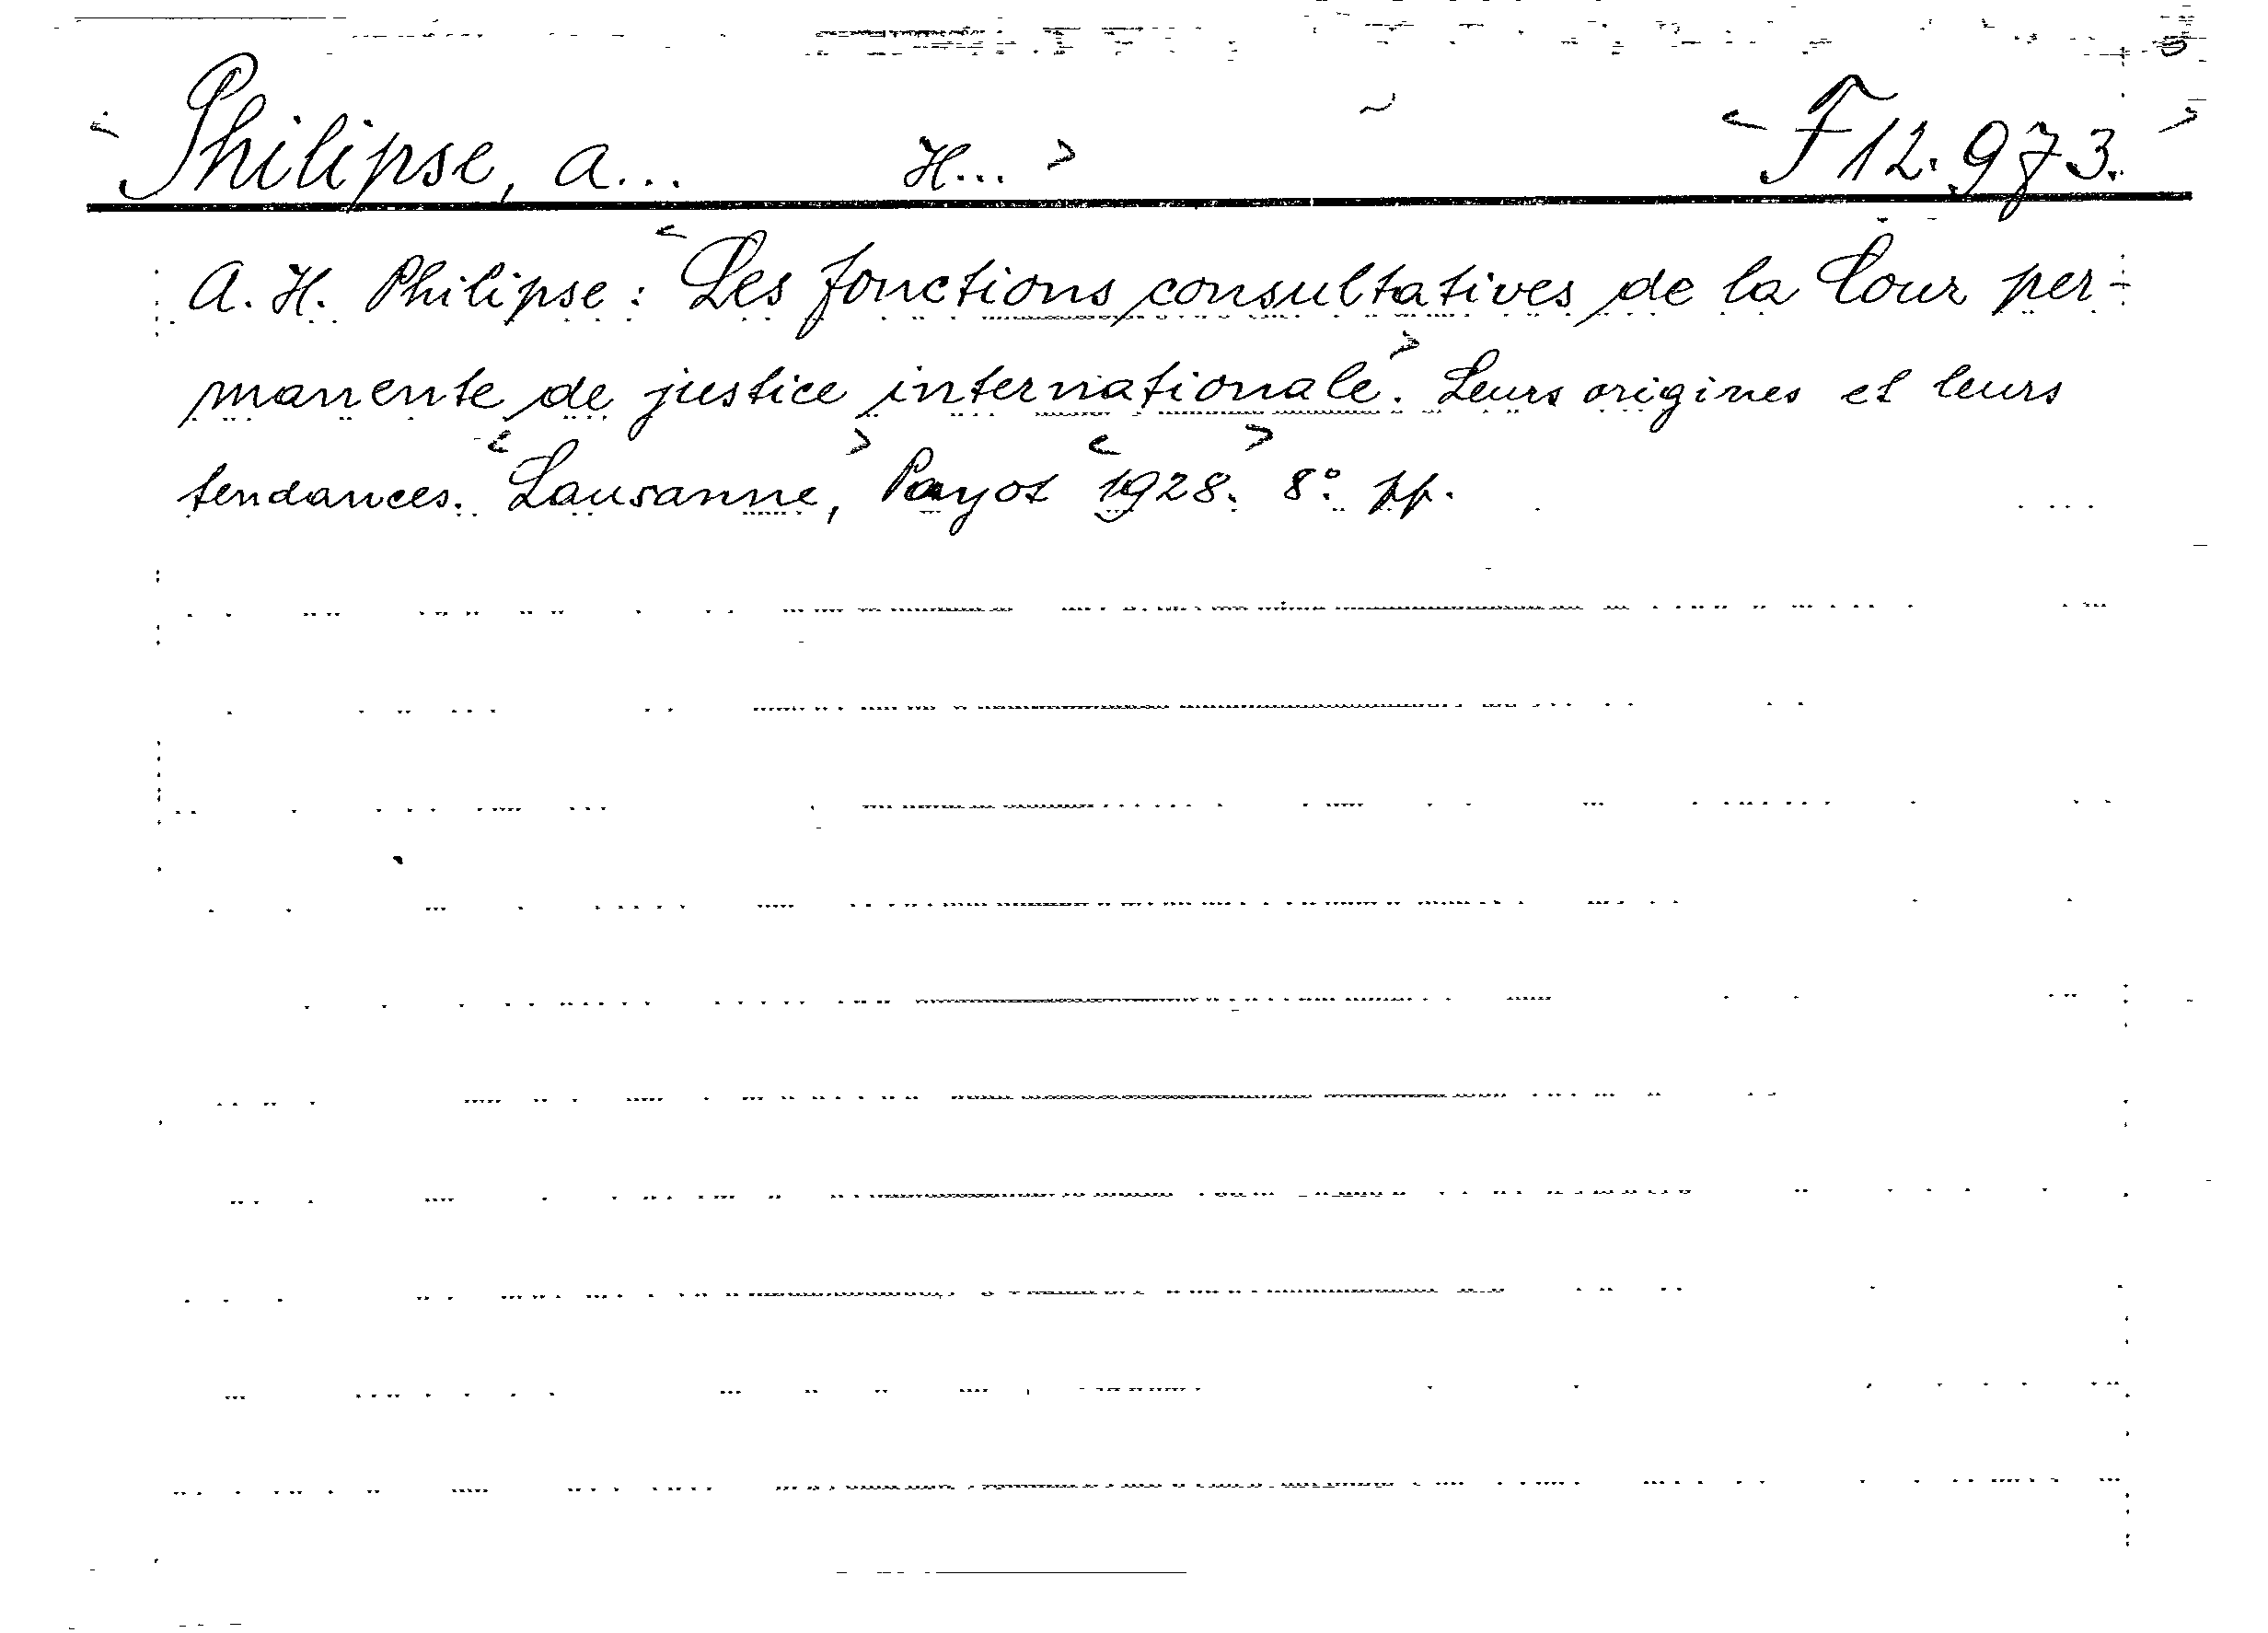 <Philipse, A... H...> <F 12.973.>
A. H. Philipse: <Les fonctions consultatives de la Cour per-
manente de justice internationale>. Leurs origines et leurs
tendances. <Lausanne>, Payot <1928>. 8°. pp.